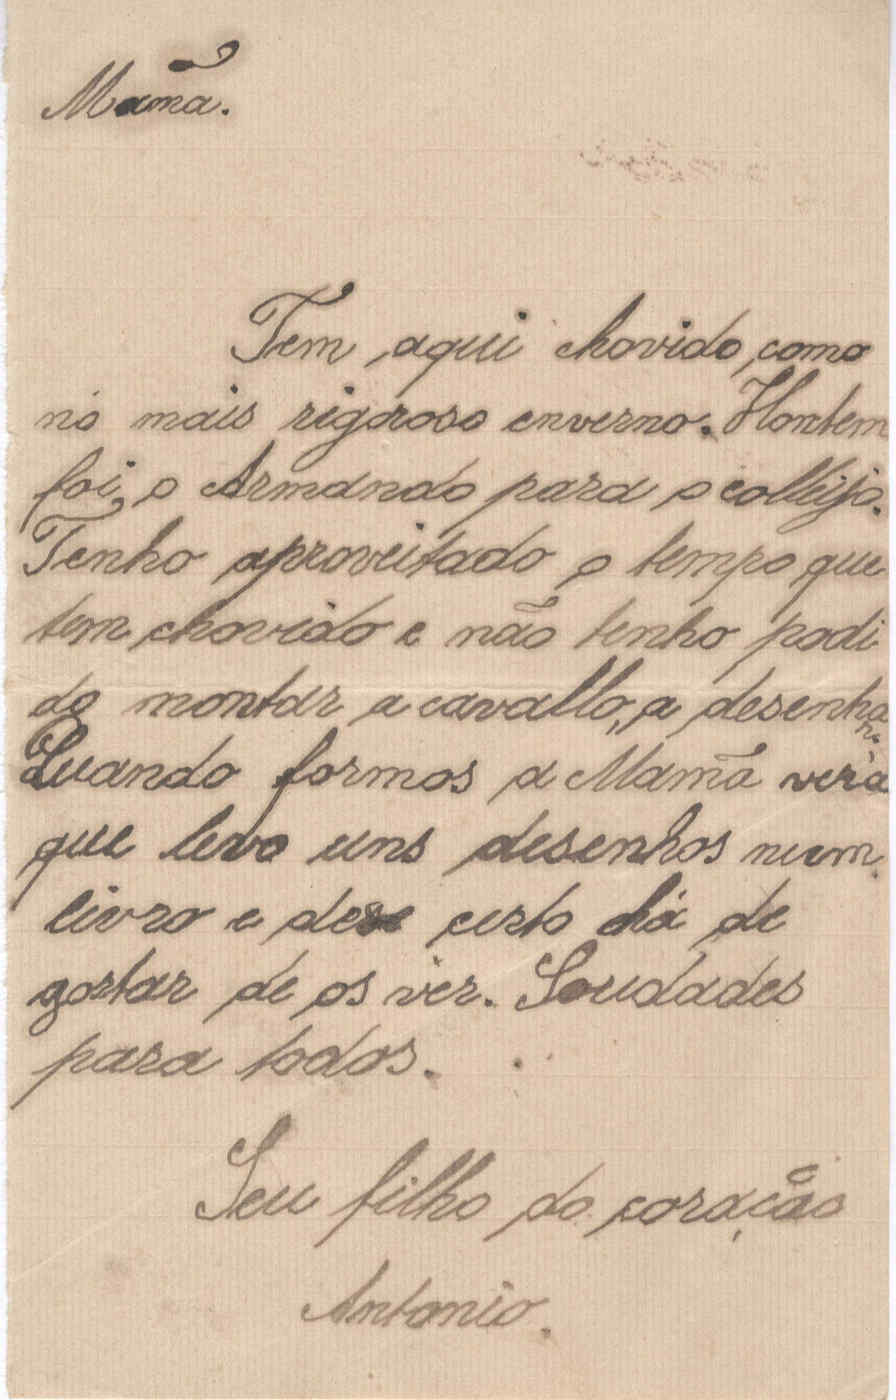 Mamã.
Tem aqui chovido, como
nó mais rigoroso enverno. Hontem
foi, o Armando para o collijo.
Tenho aproveitado o tempo que
tem chovido e não tenho podi
do montar a cavallo, a desenhar.
Quando formos a Mamã verá
que levo uns desenhos num
livro e de certo há de
gostar de os ver. Soudades
para todos.
Seu filho do coração
Antonio.